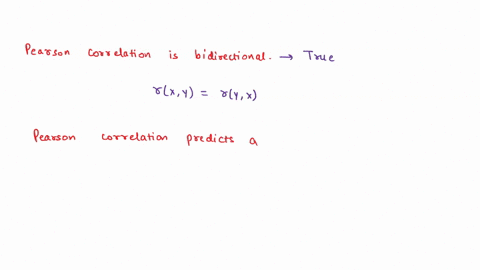 Pearson correlation is bidirectional. → True
r(x,y) = r(y,x)
Pearson correlation predicts a